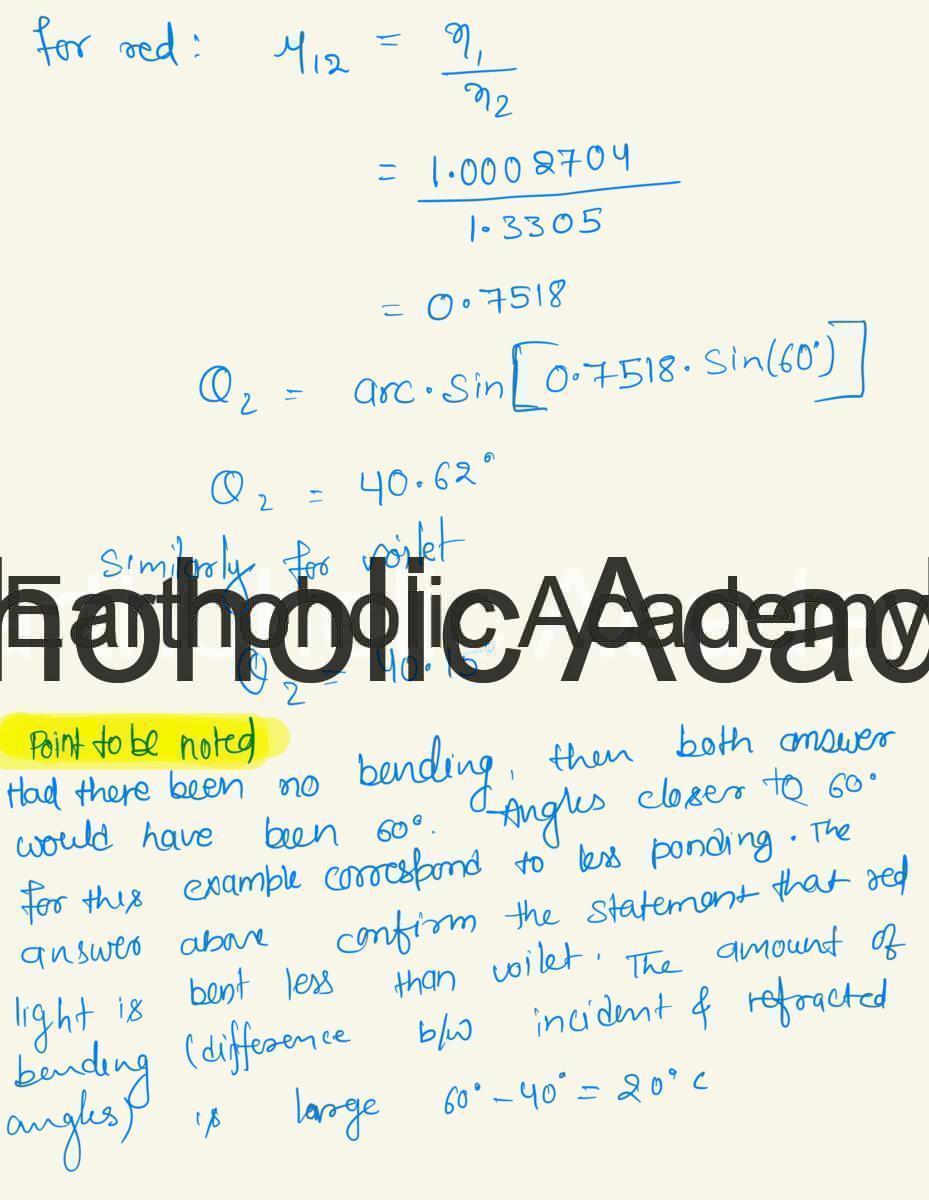 for red: μ12 = η1
η2
= 1.0002704
1.3305
= 0.7518
θ2 = arc·sin[0.7518·sin(60°)]
θ2 = 40.62°
Similarly for voilet
Earthpholic Academy
holic Acad
θ2 = 40.15°
Point to be noted
Had there been no bending, then both answer
would have been 60°. Angles closer to 60°
for this example correspond to less ponding. The
answer above confirm the statement that red
light is bent less than voilet. The amount of
bending (difference b/w incident & refracted
angles) is large 60° - 40° = 20° c